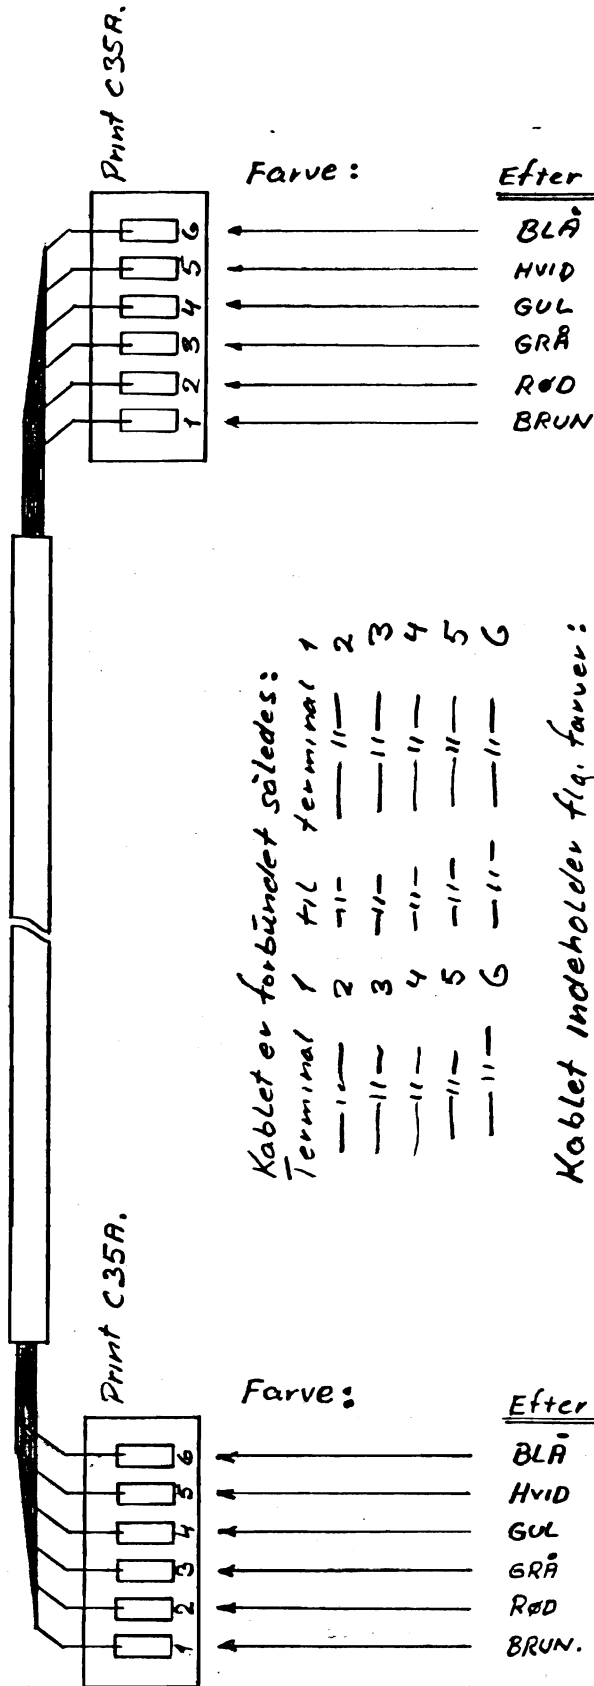 Print C35A.
Farve:
Efter
6 BLÅ
5 HVID
4 GUL
3 GRÅ
2 RØD
1 BRUN
Kablet er forbundet således:
Terminal 1 til terminal 1
—"— 2 —"— —"— 2
—"— 3 —"— —"— 3
—"— 4 —"— —"— 4
—"— 5 —"— —"— 5
—"— 6 —"— —"— 6
Kablet indeholder flg. farver:
Print C35A.
Farve:
Efter
6 BLÅ
5 HVID
4 GUL
3 GRÅ
2 RØD
1 BRUN.